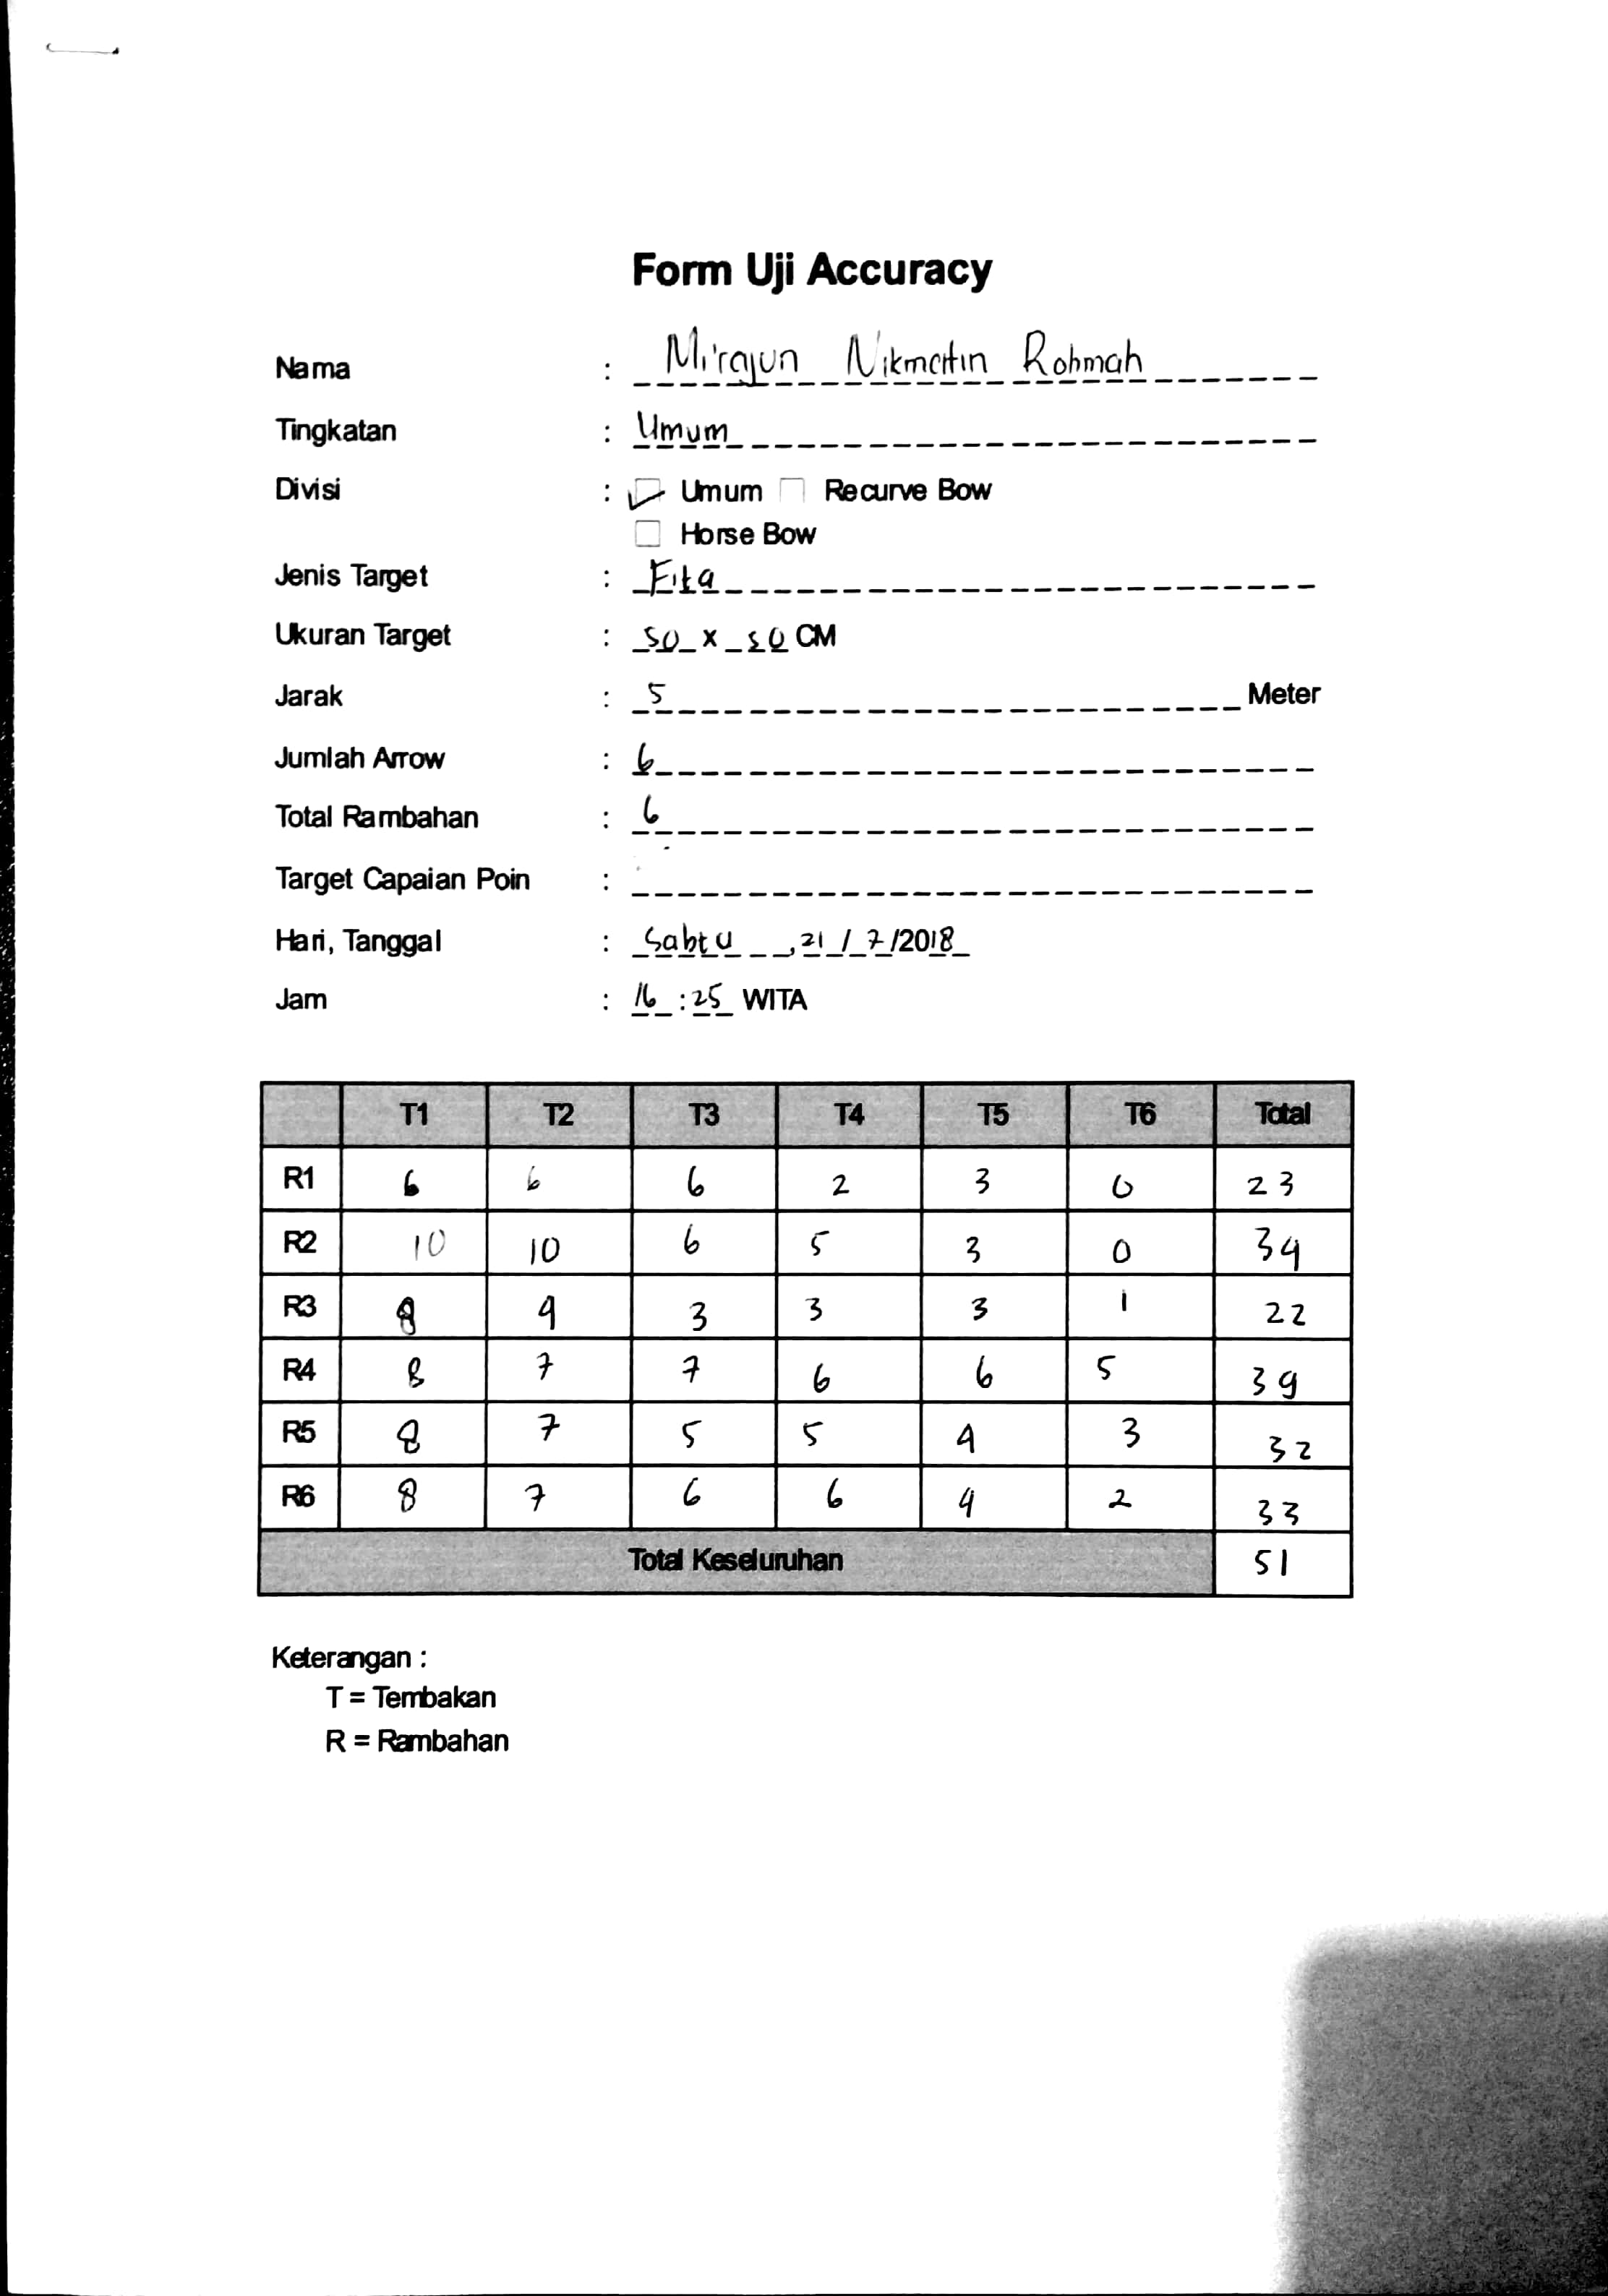 Form Uji Accuracy
Nama : Mi'rajun Nikmatin Rohmah
Tingkatan : Umum
Divisi : Umum Recurve Bow
Horse Bow
Jenis Target : Fita
Ukuran Target : 50 x 50 CM
Jarak : 5 Meter
Jumlah Arrow : 6
Total Rambahan : 6
Target Capaian Poin :
Hari, Tanggal : Sabtu , 21 / 7 /2018
Jam : 16 : 25 WITA
T1 T2 T3 T4 T5 T6 Total
R1 6 6 6 2 3 0 23
R2 10 10 6 5 3 0 34
R3 8 4 3 3 3 1 22
R4 8 7 7 6 6 5 39
R5 8 7 5 5 4 3 32
R6 8 7 6 6 4 2 33
Total Keseluruhan 51
Keterangan :
T = Tembakan
R = Rambahan